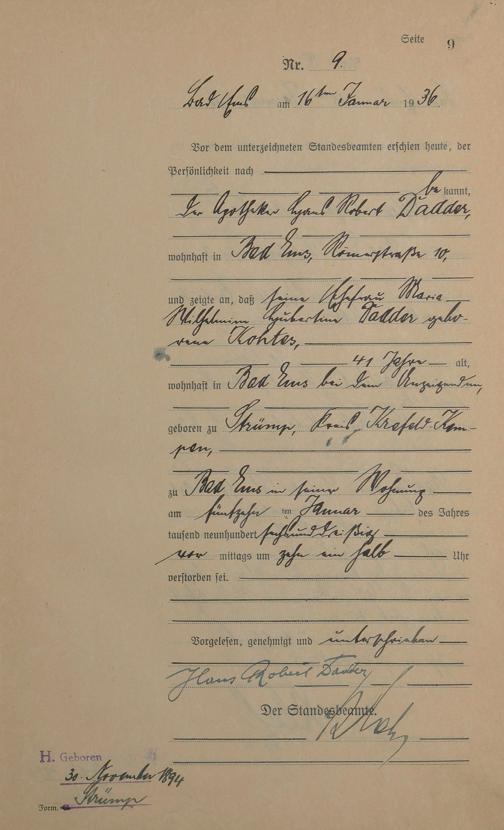 Seite 9
Nr. 9.
Bad Ems am 16ten Januar 1936
Vor dem unterzeichneten Standesbeamten erschien heute, der
Persönlichkeit nach
bekannt,
der Apotheker Hans Robert Dadder,
wohnhaft in Bad Ems, Römerstraße 10,
und zeigte an, daß seine Ehefrau Maria
Wilhelmine Hubertine Dadder gebo-
rene Kohtes,
41 Jahre alt,
wohnhaft in Bad Ems bei dem Anzeigenden,
geboren zu Strümp, Kreis Krefeld-Kem-
pen,
zu Bad Ems in seiner Wohnung
am fünfzehn ten Januar des Jahres
tausend neunhundert sechsunddreißig
vor mittags um zehn ein halb Uhr
verstorben sei.
Vorgelesen, genehmigt und unterschrieben
Hans Robert Dadder
Der Standesbeamte.
H. Geboren
30. November 1894
Strümp
Form.